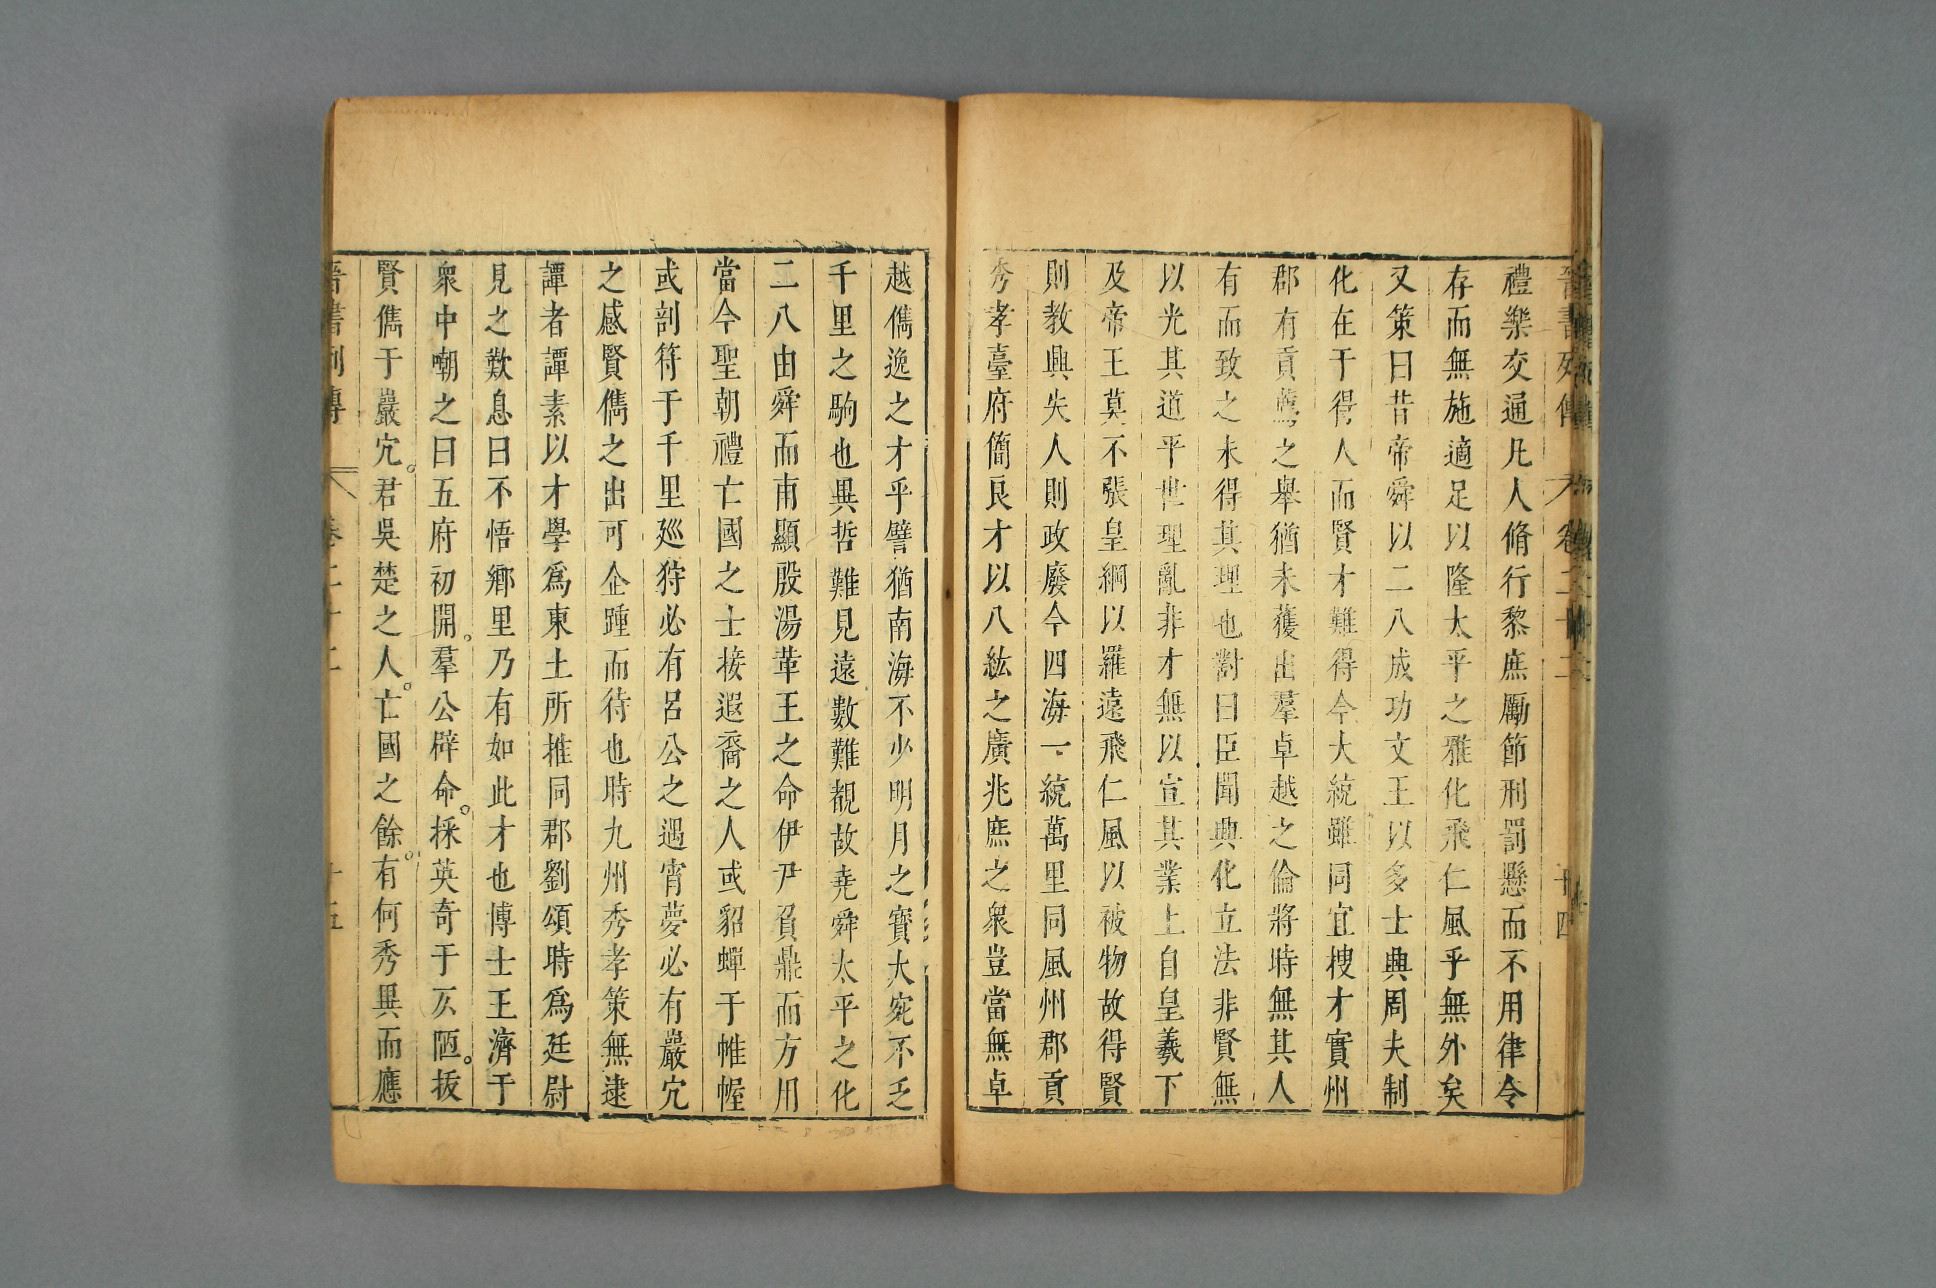 晉書列傳 卷二十二 十四
禮樂交通凡人脩行黎庶厲節刑罰懸而不用律令
存而無施適足以隆太平之雅化飛仁風乎無外矣
又策曰昔帝舜以二八成功文王以多士興周夫制
化在于得人而賢才難得今大統雖同宜搜才實州
郡有貢薦之舉猶未獲出羣卓越之倫將時無其人
有而致之未得其理也對曰臣聞典化立法非賢無
以光其道平世理亂非才無以宣其業上自皇羲下
及帝王莫不張皇綱以羅遠飛仁風以被物故得賢
則教興失人則政廢今四海一統萬里同風州郡貢
秀孝臺府簡良才以八紘之廣兆庶之衆豈當無卓
越儁逸之才乎譬猶南海不少明月之寶大宛不乏
千里之駒也異哲難見遠數難覩故堯舜太平之化
二八由舜而甫顯殷湯革王之命伊尹負鼎而方用
當今聖朝禮亡國之士接遐裔之人或貂蟬于帷幄
或剖符于千里廵狩必有呂公之遇宵夢必有巖穴
之感賢儁之出可企踵而待也時九州秀孝策無逮
譚者譚素以才學爲東土所推同郡劉頌時爲廷尉
見之歎息曰不悟鄉里乃有如此才也博士王濟于
衆中嘲之曰五府初開。羣公辟命。採英奇于仄陋。拔
賢儁于巖穴。君吳楚之人。亡國之餘。有何秀異而應
晉書列傳 卷二十二 十五